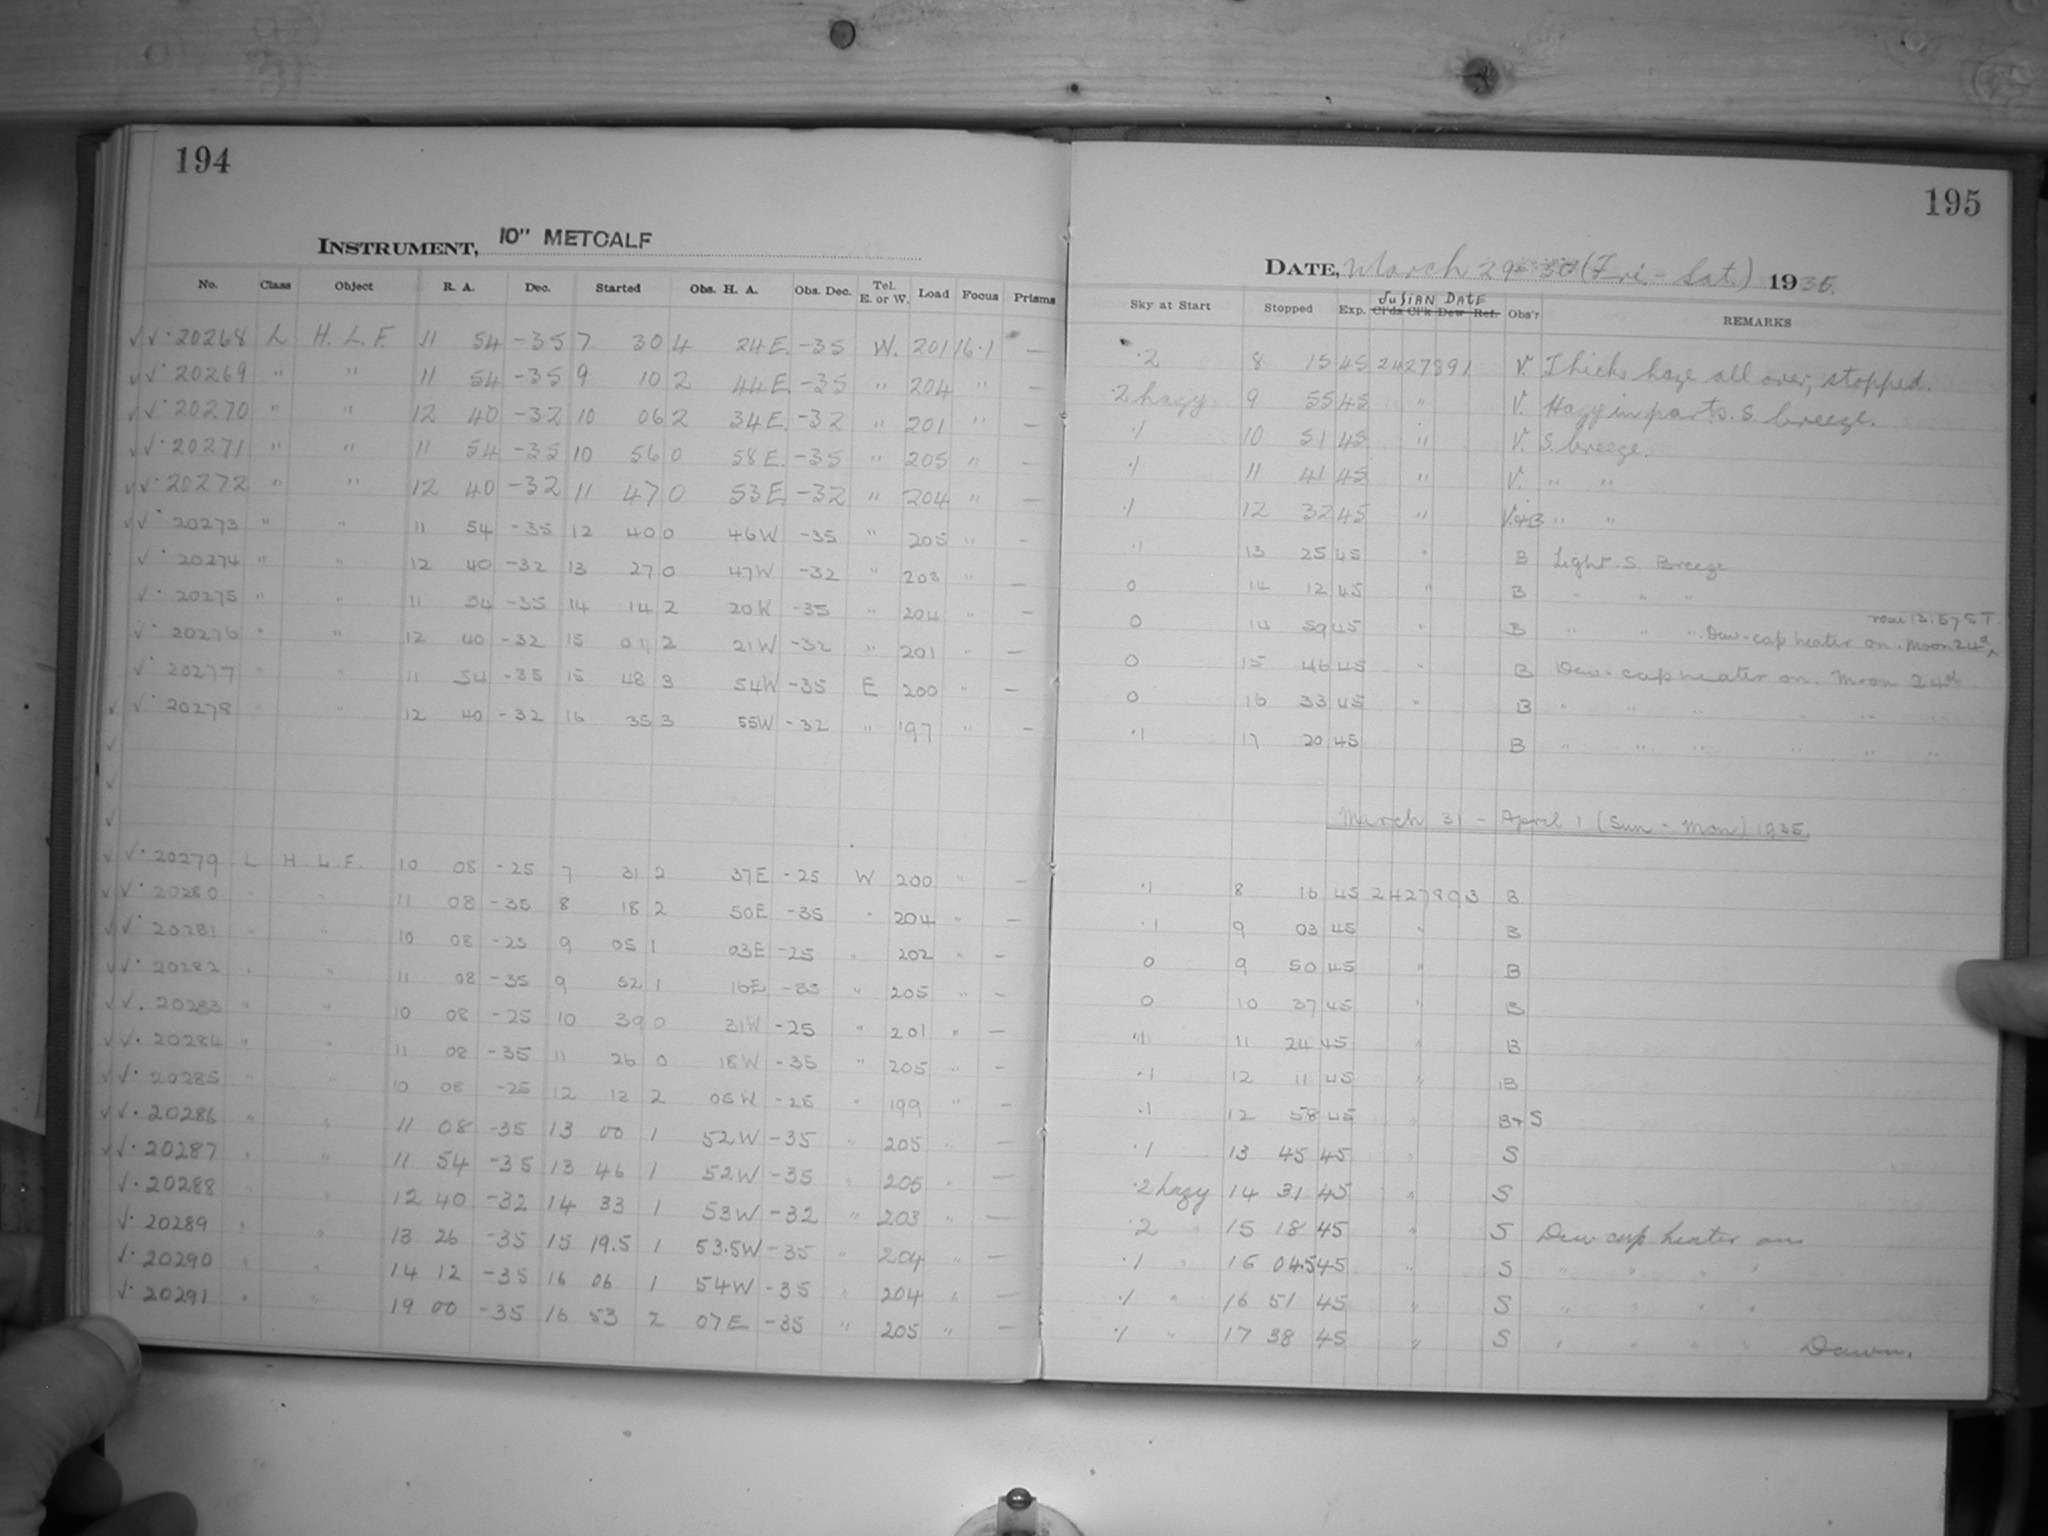 194
INSTRUMENT, 10" METCALF
No. Class Object R. A. Dec. Started Obs. H. A. Obs. Dec. Tel. E. or W. Load Focus Prisms
√ √· 20268 L H. L. F. 11 54 -35 7 30 4 24E. -35 W. 201 16·1 —
√ √· 20269 " " 11 54 -35 9 10 2 44E. -35 " 204 " —
√ √· 20270 " " 12 40 -32 10 06 2 34E. -32 " 201 " —
√ √· 20271 " " 11 54 -35 10 56 0 58E. -35 " 205 " —
√ √· 20272 " " 12 40 -32 11 47 0 53E. -32 " 204 " —
√ √· 20273 " " 11 54 -35 12 40 0 46W -35 " 205 " —
√· 20274 " " 12 40 -32 13 27 0 47W -32 " 203 " —
√· 20275 " " 11 54 -35 14 14 2 20W -35 " 204 " —
√· 20276 " " 12 40 -32 15 01 2 21W -32 " 201 " —
√· 20277 " " 11 54 -35 15 48 3 54W -35 E 200 " —
√ √· 20278 " " 12 40 -32 16 35 3 55W -32 " 197 " —
√
√
√
√ √· 20279 L H. L. F. 10 08 -25 7 31 2 37E -25 W 200 " —
√ √· 20280 " " 11 08 -35 8 18 2 50E -35 " 204 " —
√ √· 20281 " " 10 08 -25 9 05 1 03E -25 " 202 " —
√ √· 20282 " " 11 08 -35 9 52 1 16E -35 " 205 " —
√ √· 20283 " " 10 08 -25 10 39 0 31W -25 " 201 " —
√ √· 20284 " " 11 08 -35 11 26 0 18W -35 " 205 " —
√ √· 20285 " " 10 08 -25 12 13 2 05W -25 " 199 " —
√ √· 20286 " " 11 08 -35 13 00 1 52W -35 " 205 " —
√ √· 20287 " " 11 54 -35 13 46 1 52W -35 " 205 " —
√· 20288 " " 12 40 -32 14 33 1 53W -32 " 203 " —
√· 20289 " " 13 26 -35 15 19.5 1 53.5W -35 " 204 " —
√· 20290 " " 14 12 -35 16 06 1 54W -35 " 204 " —
√· 20291 " " 19 00 -35 16 53 2 07E -35 " 205 " —
195
DATE, March 29-30 (Fri - Sat.) 1935.
Sky at Start Stopped Exp. JULIAN DATE Cl'ds Cl'k Dew Ref. Obs'r REMARKS
·2 8 15 45 2427891 V. Thick haze all over, stopped.
·2 hazy 9 55 45 " V. Hazy in parts. S. breeze.
·1 10 51 45 " V. S. breeze.
·1 11 41 45 " V. " "
·1 12 32 45 " V.+B " "
·1 13 25 45 " B Light. S. Breeze
0 14 12 45 " B " " "
rose 13.57 S T.
0 14 59 45 " B " " " Dew-cap heater on. Moon 24d
0 15 46 45 " B Dew-cap heater on. Moon 24d
0 16 33 45 " B " " " " " "
·1 17 20 45 B " " " " " "
March 31 - April 1 (Sun - Mon) 1935.
·1 8 16 45 2427893 B
·1 9 03 45 " B
0 9 50 45 " B
0 10 37 45 " B
·1 11 24 45 " B
·1 12 11 45 " B
·1 12 58 45 " B+S
·1 13 45 45 " S
·2 hazy 14 31 45 " S
·2 " 15 18 45 " S Dew cap heater on
·1 " 16 04.5 45 " S " " " "
·1 " 16 51 45 " S " " " "
·1 " 17 38 45 " S " " " " Dawn.